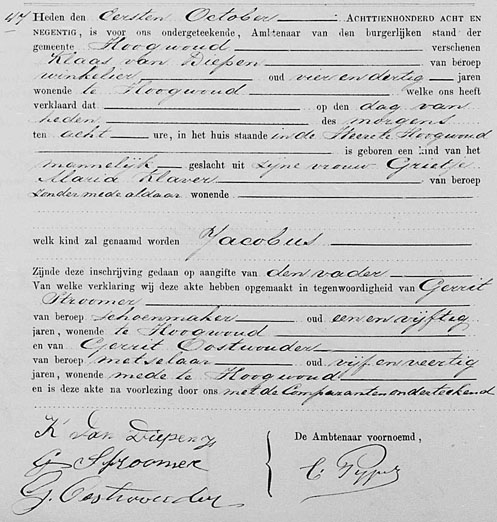 47 Heden den Eersten October ACHTTIENHONDERD ACHT EN
NEGENTIG, is voor ons ondergeteekende, Ambtenaar van den burgerlijken stand der
gemeente Hoogwoud verschenen
Klaas van Diepen van beroep
winkelier oud vier en dertig jaren
wonende te Hoogwoud welke ons heeft
verklaard dat op den dag van
heden des morgens
ten acht ure, in het huis staande in de Heerete Hoogwoud
is geboren een kind van het
mannelijk geslacht uit zijne vrouw Grietje
Maria Klaver van beroep
zonder mede aldaar wonende
welk kind zal genaamd worden Jacobus
Zijnde deze inschrijving gedaan op aangifte van den vader
Van welke verklaring wij deze akte hebben opgemaakt in tegenwoordigheid van Gerrit
Stroomer
van beroep schoenmaker oud een en vijftig
jaren, wonende te Hoogwoud
en van Gerrit Oostwouder
van beroep metselaar oud vijf en veertig
jaren, wonende mede te Hoogwoud
en is deze akte na voorlezing door ons met de Comparanten onderteekend
K van Diepen
G Stroomer
G. Oostwouder
De Ambtenaar voornoemd,
C. Pijper